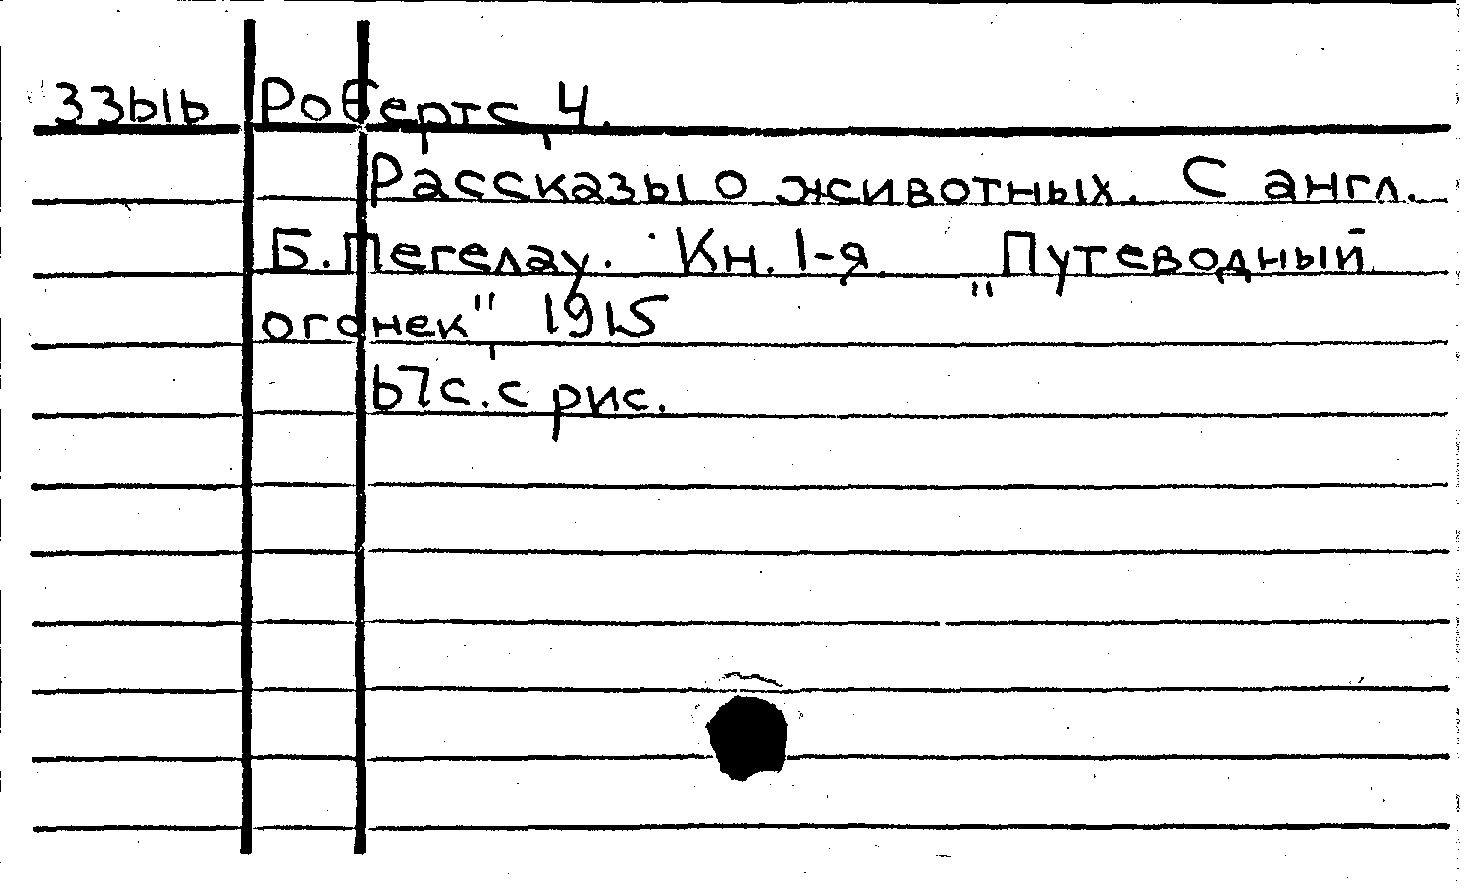 33616 Робертс, Ч.
Рассказы о животных. С англ.
Б. Пегелау. Кн. 1-я „Путеводный
огонек", 1915
67с. с рис.